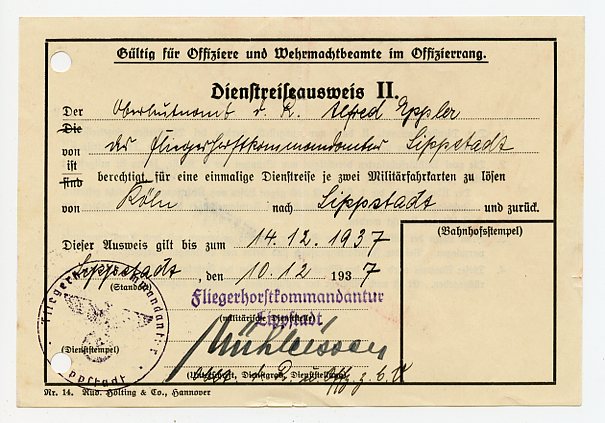 Gültig für Offiziere und Wehrmachtbeamte im Offizierrang.
Dienstreiseausweis II.
Der Oberleutnant d. R. Alfred Eppler
Die
von der Fliegerhorstkommandantur Lippstadt
ist
sind berechtigt für eine einmalige Dienstreise je zwei Militärfahrkarten zu lösen
von Köln nach Lippstadt und zurück.
Dieser Ausweis gilt bis zum 14.12.1937
(Bahnhofsstempel)
Lippstadt, den 10.12 1937
(Standort)
Fliegerhorstkommandantur
(militärische Dienststelle)
Lippstadt
(Dienststempel)
(Unterschrift, Dienstgrad, Dienststellung)
Offz. z. b. V.
Nr. 14. Rud. Hölting & Co., Hannover